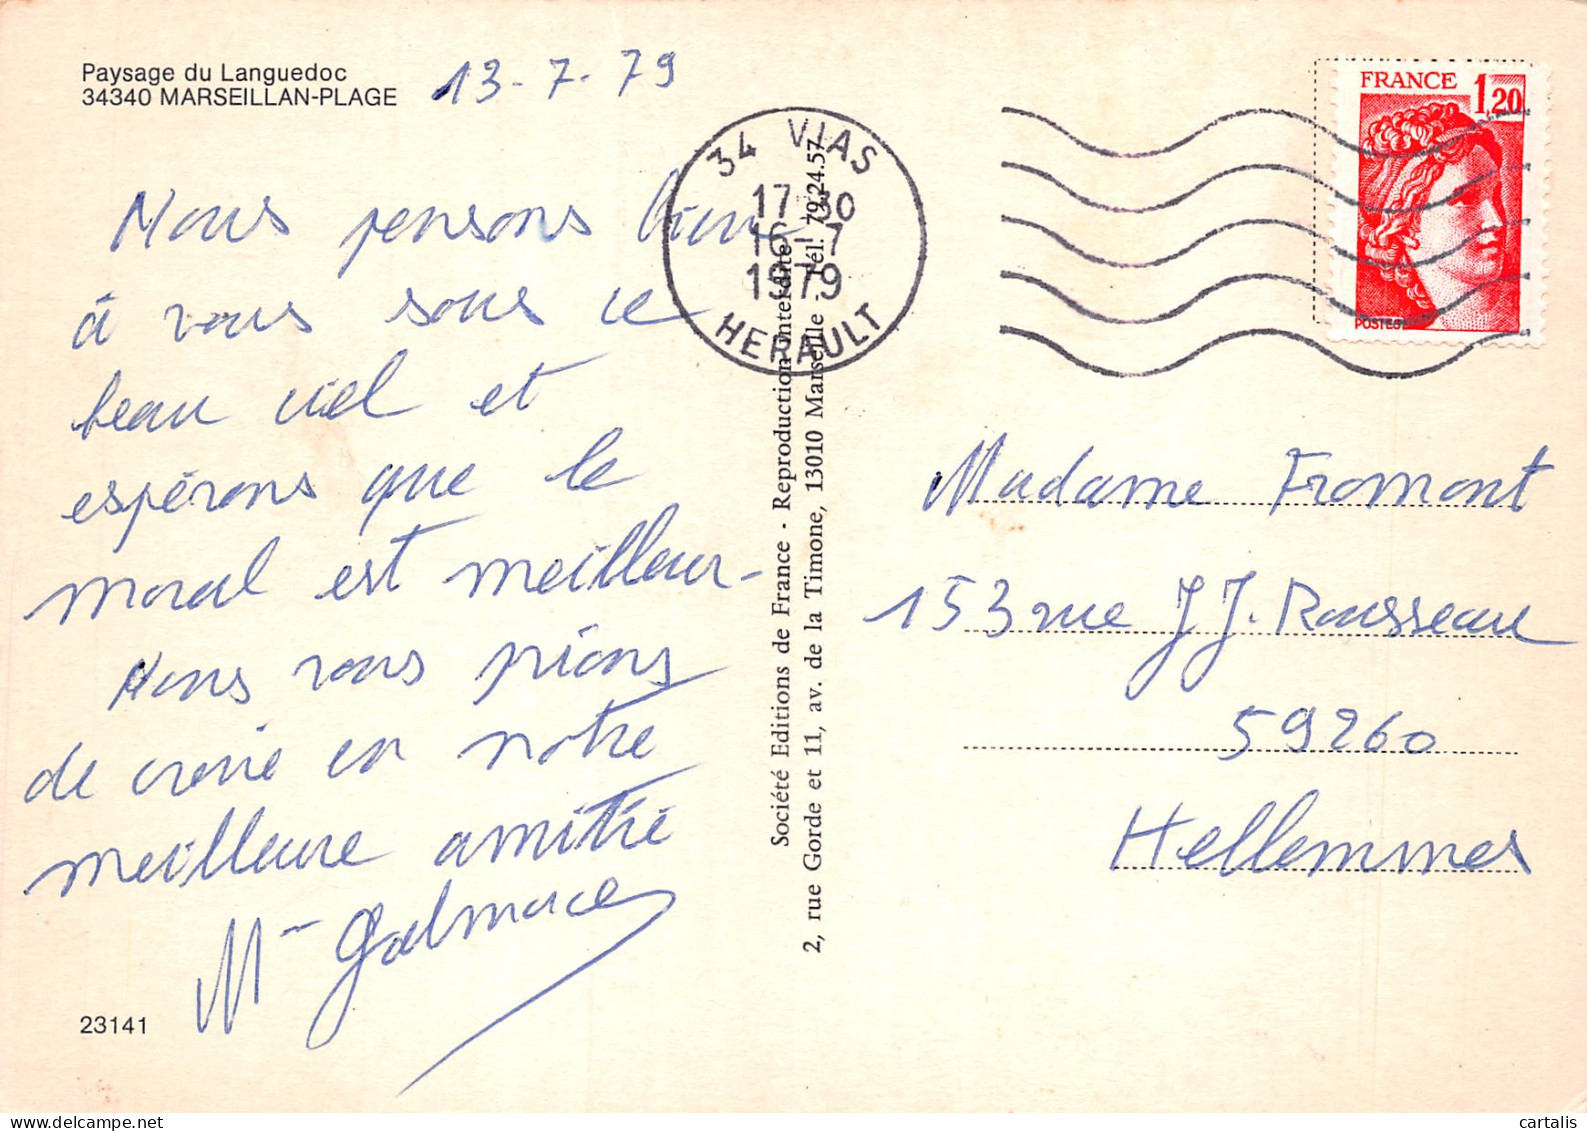 Paysage du Languedoc
34340 MARSEILLAN-PLAGE
13-7-79
Nous pensons bien
à vous sous ce
beau ciel et
espérons que le
moral est meilleur-
Nous vous prions
de croire en notre
meilleure amitié
23141
34 VIAS
17 30
16 - 7
1979
HERAULT
Société Editions de France - Reproduction interdite
2, rue Gorde et 11, av. de la Timone, 13010 Marseille - Tél. 79.24.57
FRANCE 1,20
POSTES
Madame Fromont
153 rue J J. Rousseau
59260
Hellemmes
cartalis